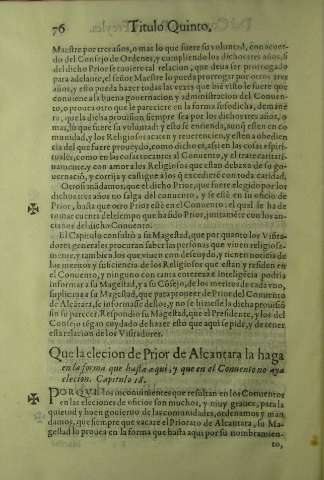 76 Titulo Quinto,
Maestre por tres años, o mas lo que fuere su voluntad, con acuerdo
del Consejo de Ordenes, y cumpliendo los dichos tres años, si
del dicho Prior se tuviere tal relacion, que deva ser prorrogado
para adelante, el señor Maestre lo pueda prorrogar por otros tres
años, y esto pueda hazer todas las vezes que biē visto le fuere que
conviene a la buena governacion y administracion del Conuento,
o provea otro que le pareciere en la forma susodicha, de manera,
que la dicha provision siempre sea por los dichos tres años, o
mas, lo que fuere su voluntad: y esto se entienda, aunq̃ esten en comunidad,
y los Religiosos acaten y reverencien, y esten a obediencia
del que fuere proveydo, como dicho es, assi en las cosas espirituales,
como en las cosas tocantes al Conuento, y el trate caritativamente,
y con amor a los Religiosos que estan debaxo de su governaciõ,
y corrija y castigue a los q̃ excedieren con toda caridad.
Otrosi añadimos, que el dicho Prior, que fuere elegido por los
dichos tres años no salga del conuento, y se estè en su oficio de
Prior, hasta que otro Prior estè en el Conuento: el qual le ha de
tomar cuenta del tiempo que ha sido Prior, juntamēte con los ancianos
del dicho Conuento.
El Capitulo consultò a su Magestad, que por quanto los Visitadores
generales procuran saber las personas que viven religiosamente,
y tambien los que viven con descuydo, y tienen noticia de
los meritos y suficiencia de los Religiosos que estan y residen en
el Conuento, y ninguno con tanta entereza è Inteligēcia podria
informar a su Magestad, y a su Cōsejo, de los meritos de cada uno,
suplican a su Magestad, que para proveer de Prior del Conuento
de Alcãtara, se informasse dellos, y no se hiziesse la dicha provisiō
sin su parecer. Respondio su Magestad, que el Presidente, y los del
Consejo tēgan cuydado de hazer esto que aqui se pide, y de tener
esta relacion de los Visitadores.
Que la elecion de Prior de Alcantara la haga
en la forma que hasta aqui, y que en el Conuento no aya
elecion. Capitulo 18.
PORQVE los inconuinientes que resultan en los Conuentos
en las eleciones de oficios son muchos, y muy graves, para la
quietud y buen govierno de las comunidades, ordenamos y mandamos,
que siempre que vacare el Priorato de Alcantara, su Magestad
lo provea en la forma que hasta aqui por su nombramiento,